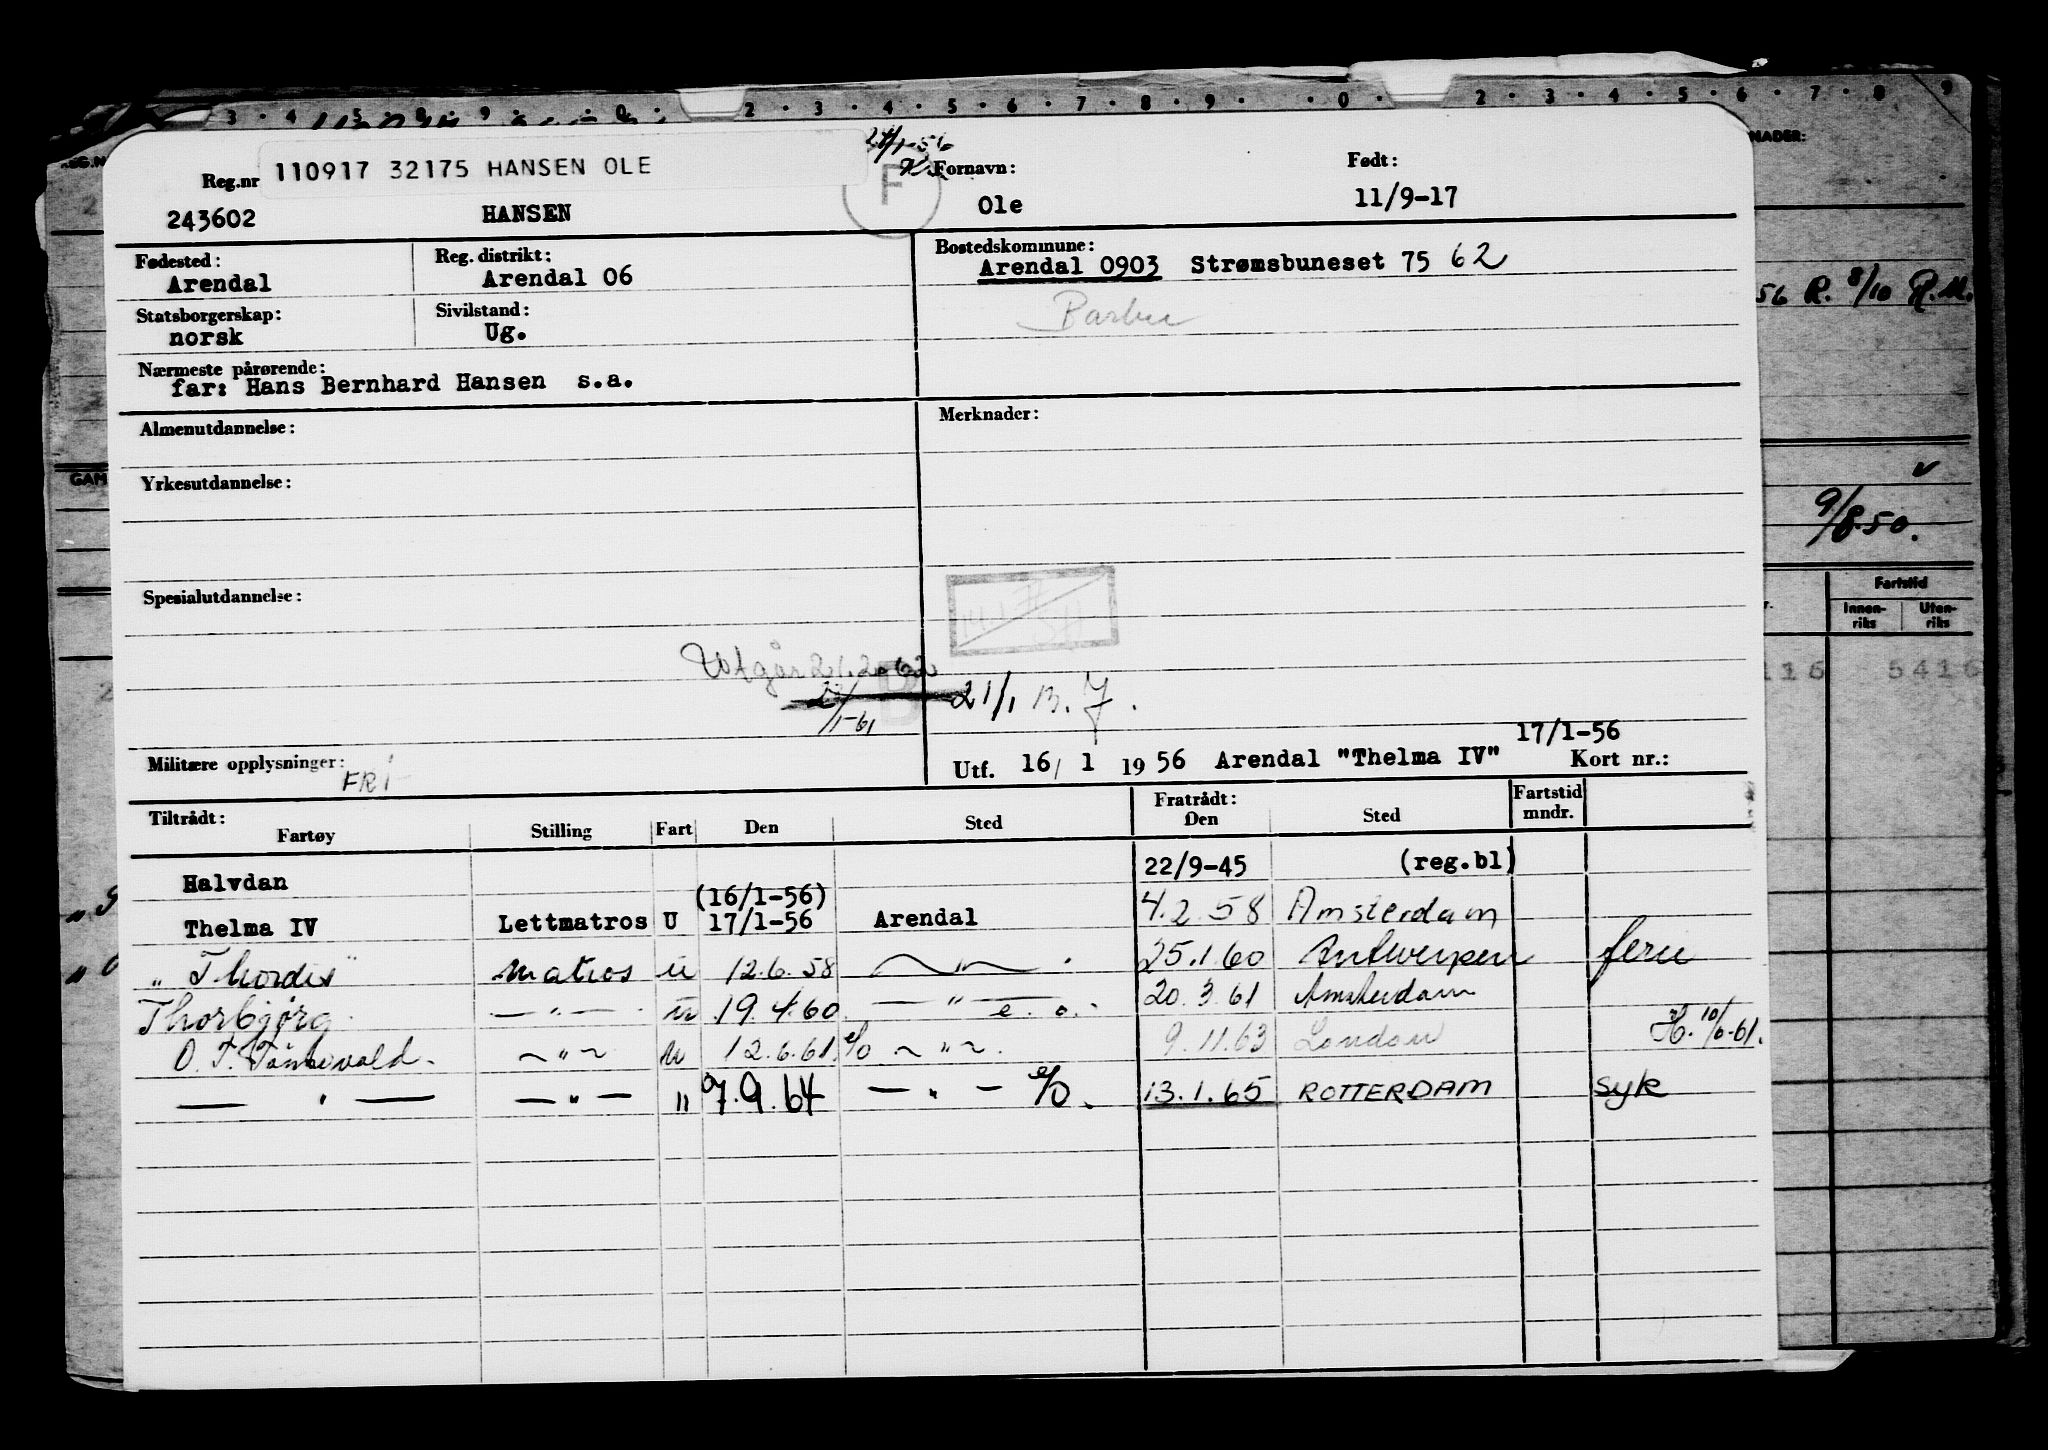 3 4 5 8 9 0 2 3 4 5 6 7 8 9 0 2 3 4 5 6 7 8 9
110917 32175 HANSEN OLE
Reg.nr
243602 HANSEN
F
Fornavn: Født:
Ole 11/9-17
Fødested: Reg. distrikt: Bostedskommune:
Arendal Arendal 06 Arendal 0903 Strømsbuneset 75 62
Statsborgerskap: Sivilstand: Barbu
norsk Ug.
Nærmeste pårørende:
far: Hans Bernhard Hansen s.a.
Almenutdannelse: Merknader:
Yrkesutdannelse:
Spesialutdannelse:
Utgår 21.2.62
1-61 21/1
17/1-56
Militære opplysninger: FRI Utf. 16/ 1 1956 Arendal "Thelma IV" Kort nr.:
Tiltrådt: Fratrådt: Fartstid
Fartøy Stilling Fart Den Sted Den Sted mndr.
Halvdan 22/9-45 (reg.bl)
(16/1-56)
Thelma IV Lettmatros U 17/1-56 Arendal 4.2.58 Amsterdam
„ "Thordis" Matros u 12.6.58 — „ — 25.1.60 Antwerpen ferie
Thorbjørg — „ — u 19.4.60 — „ — e.o. 20.3.61 Amsterdam
O. T. Tønnevold — „ — u 12.6.61 e/o — „ — 9.11.63 London H. 10/6-61.
— „ — — „ — „ 7.9.64 — „ — e/o. 13.1.65 ROTTERDAM syk
NADER:
56 R. 8/10 R.M.
9/8.50.
Fartstid
Innen-riks Uten-riks
116 5416
GAM